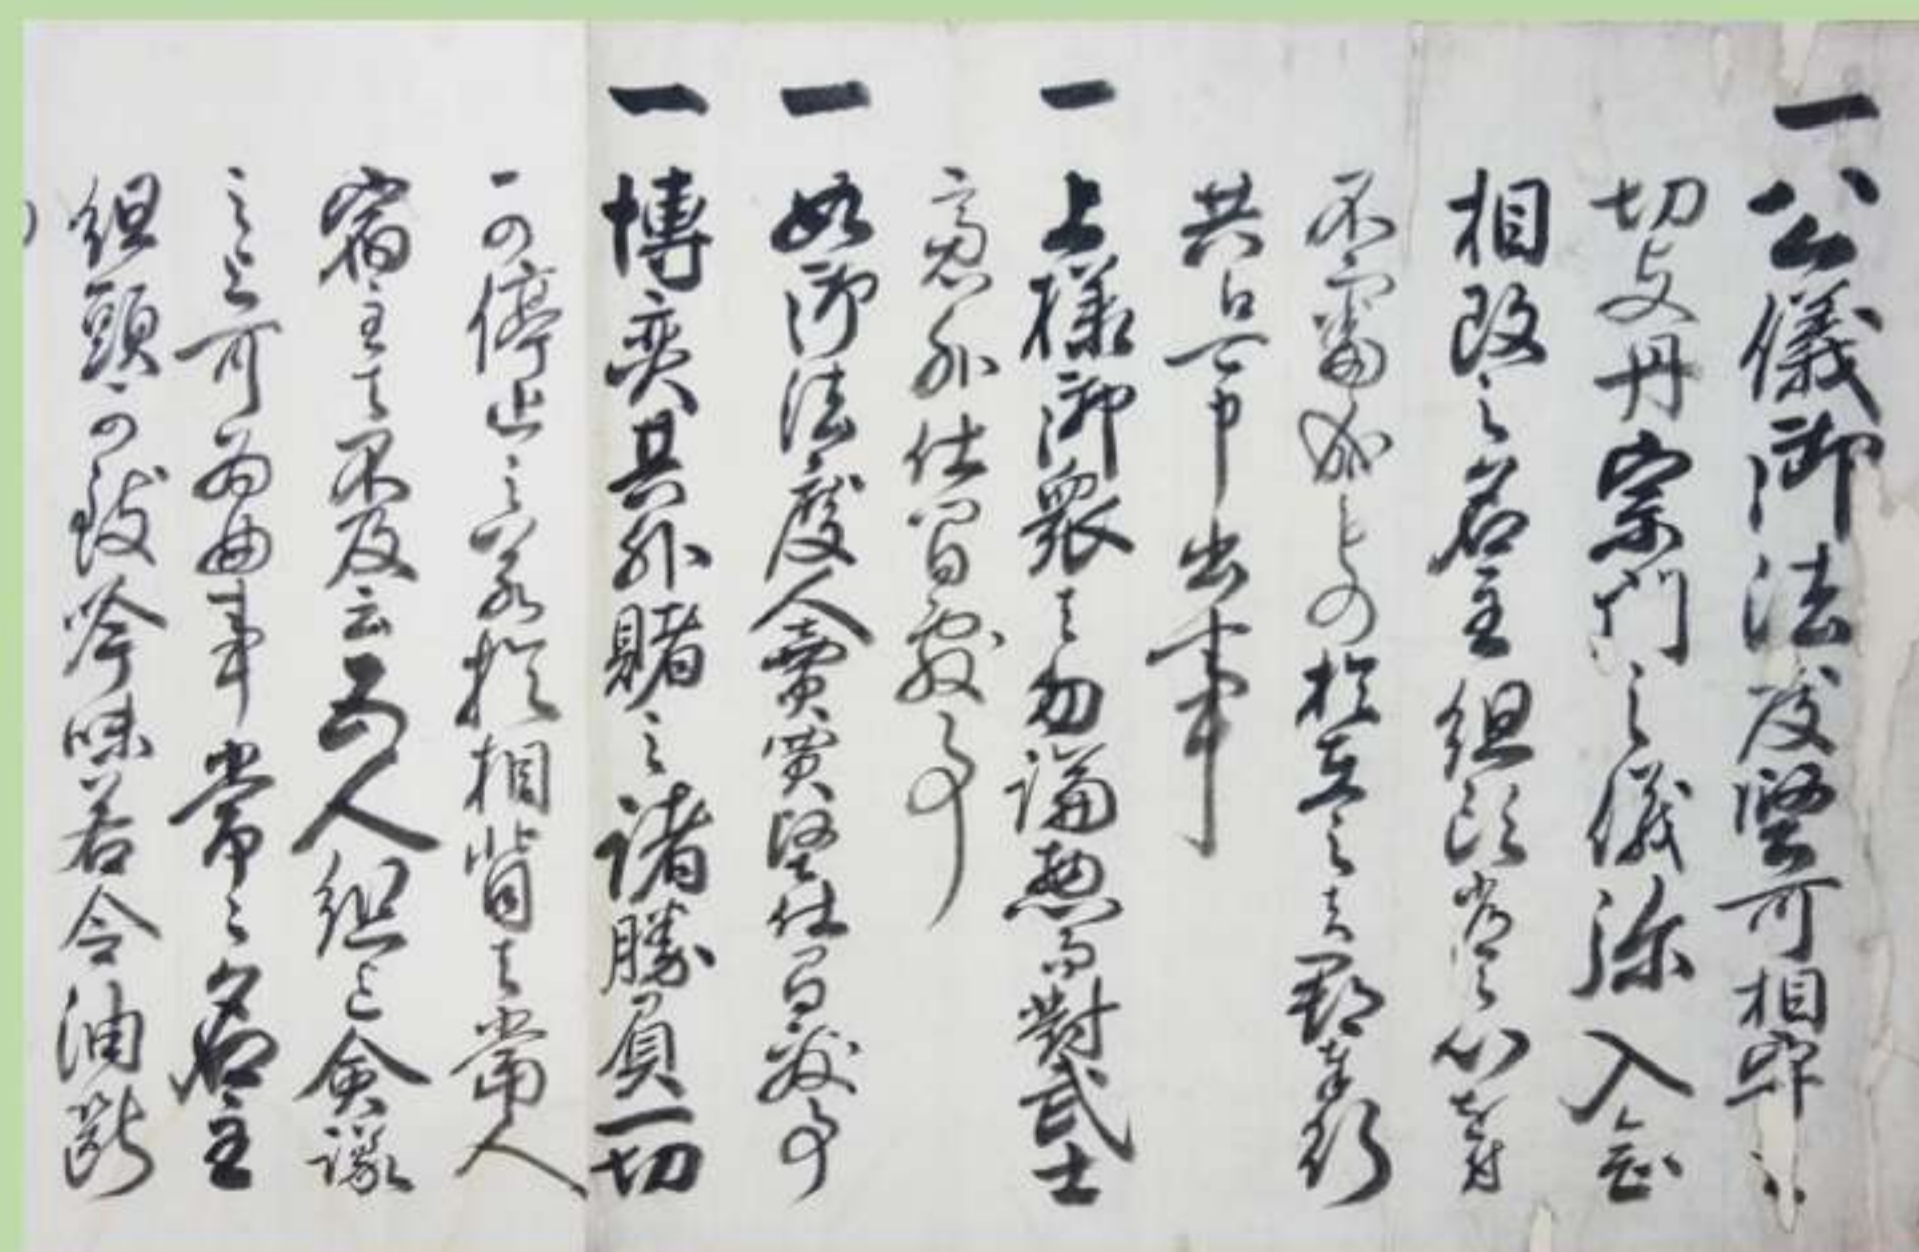 一公儀御法度堅可相守
切支丹宗門之儀弥入念
相改之名主組頭常々心を付
不審成もの於在之者郡奉行
共迄可申出事
一上様御衆者勿論惣而對武士
慮外仕間敷事
一如御法度人賣買堅仕間敷事
一博奕其外賭之諸勝負一切
可停止之若於相背者當人
宿主者不及云五人組迄僉議
之上可為曲事常々名主
組頭可致吟味若令油断